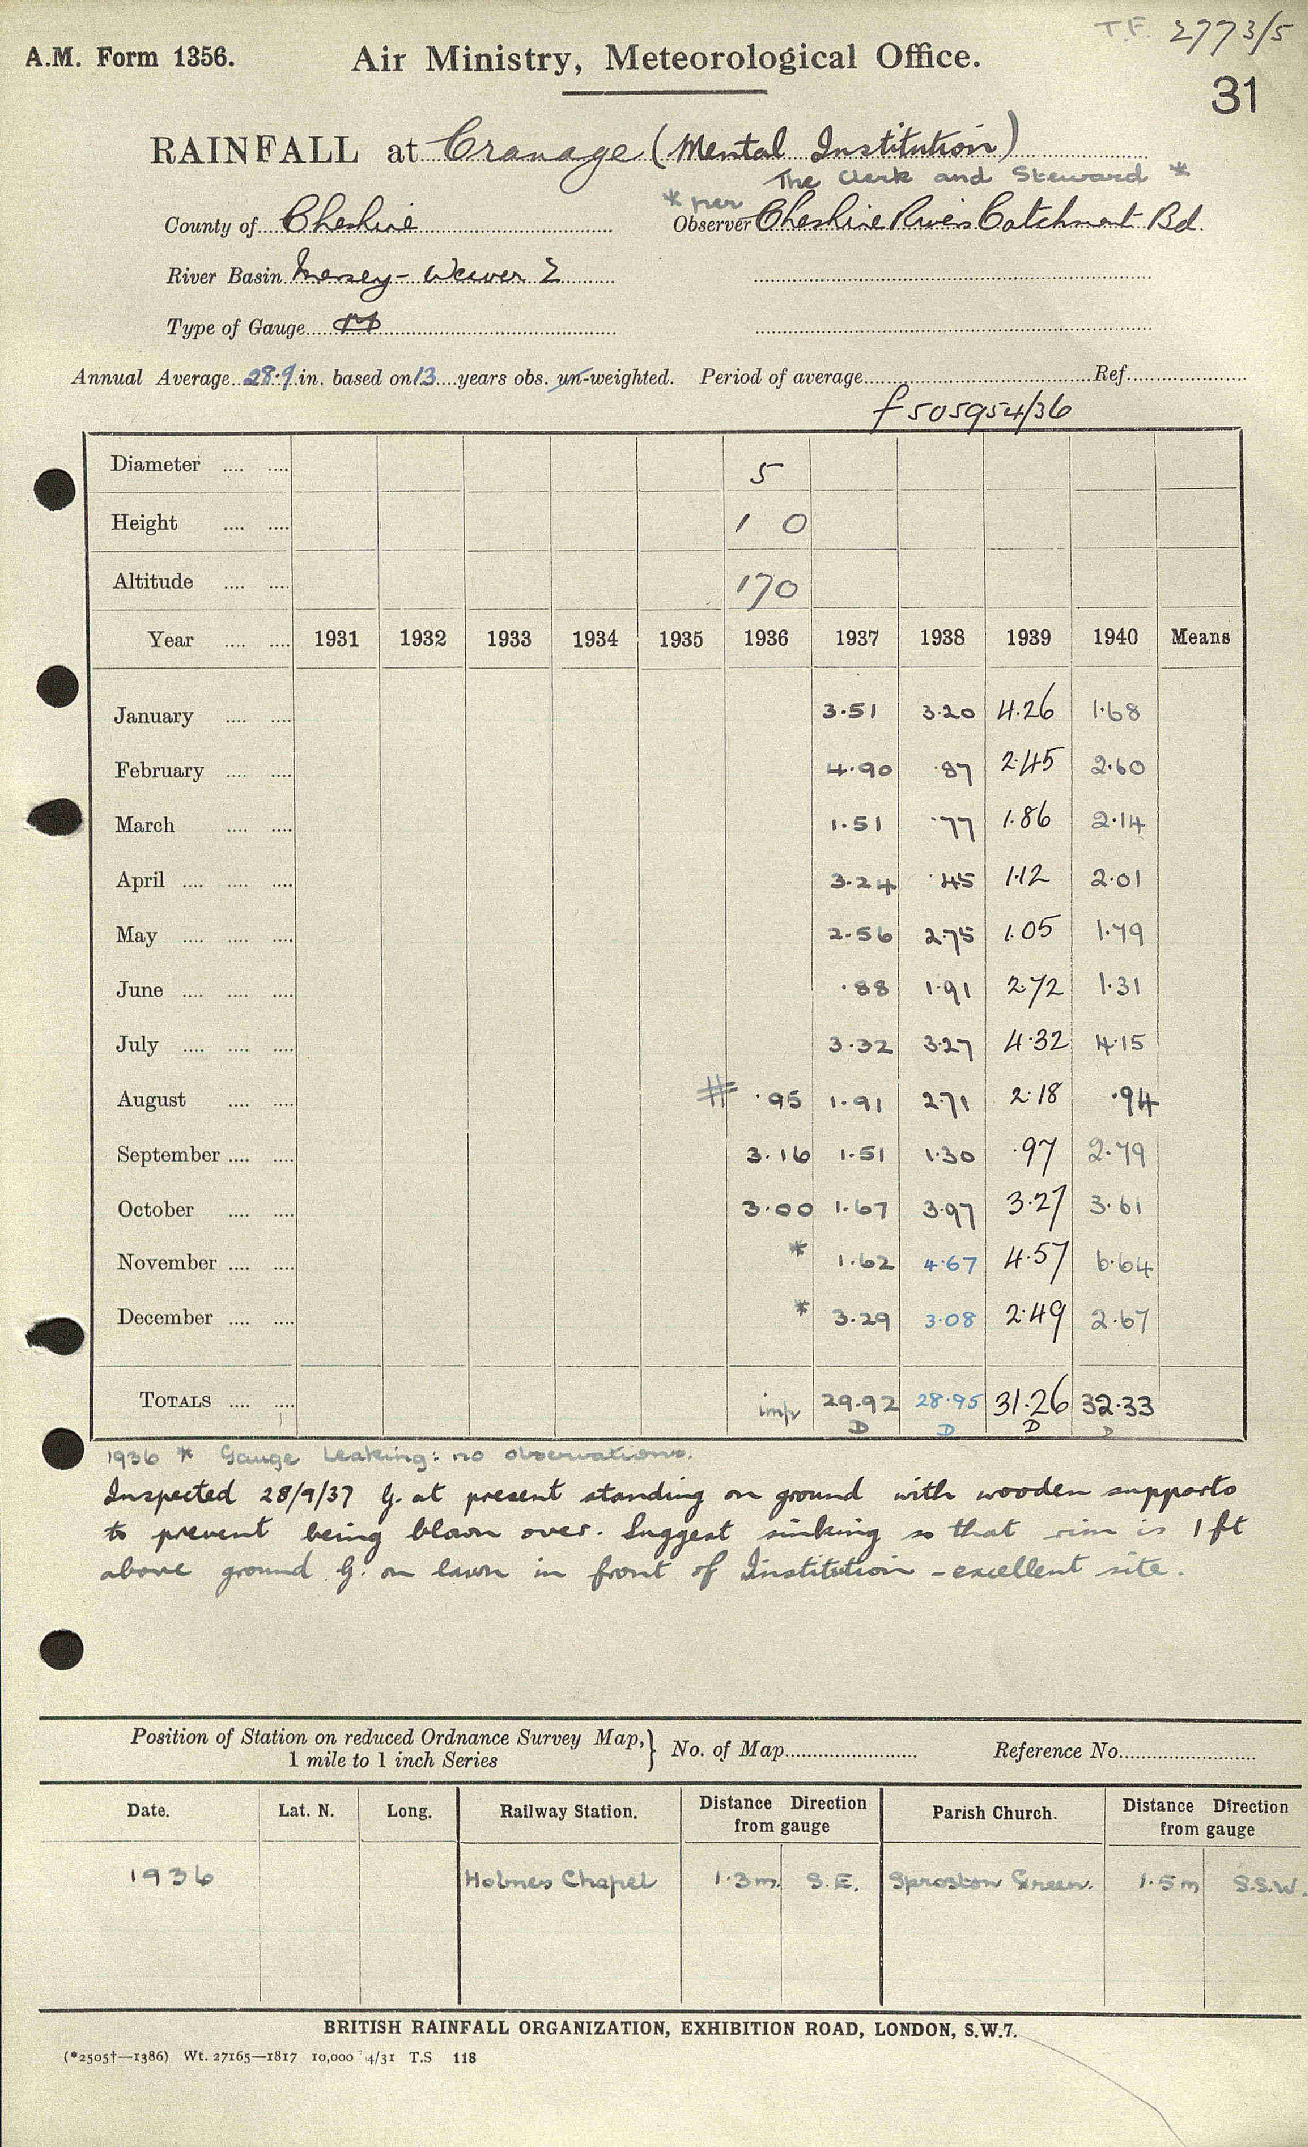 T.F. 2773/5
A.M. Form 1356. Air Ministry, Meteorological Office.
31
RAINFALL at Cranage (Mental Institution)
The Clerk and Steward *
* per
County of Cheshire Observer Cheshire Rivers Catchment Bd.
River Basin Mersey - Weaver E
Type of Gauge M
Annual Average 28.9 in. based on 13 years obs. un-weighted. Period of average Ref.
f 505954/36
Diameter 5
Height 1 0
Altitude 170
Year 1931 1932 1933 1934 1935 1936 1937 1938 1939 1940 Means
January 3.51 3.20 4.26 1.68
February 4.90 .87 2.45 2.60
March 1.51 .77 1.86 2.14
April 3.24 .45 1.12 2.01
May 2.56 2.75 1.05 1.79
June .88 1.91 2.72 1.31
July 3.32 3.27 4.32 4.15
August # .95 1.91 2.71 2.18 .94
September 3.16 1.51 1.30 .97 2.79
October 3.00 1.67 3.97 3.27 3.61
November * 1.62 4.67 4.57 6.64
December * 3.29 3.08 2.49 2.67
TOTALS imp 29.92 28.95 31.26 32.33
D D D D
1936 * Gauge leaking: no observations.
Inspected 28/9/37 G. at present standing on ground with wooden supports
to prevent being blown over. Suggest sinking so that rim is 1 ft
above ground. G. on lawn in front of Institution - excellent site.
Position of Station on reduced Ordnance Survey Map, } No. of Map Reference No.
1 mile to 1 inch Series
Date. Lat. N. Long. Railway Station. Distance Direction Parish Church. Distance Direction
from gauge from gauge
1936 Holmes Chapel 1.3m. S.E. Sproston Green. 1.5m S.S.W.
BRITISH RAINFALL ORGANIZATION, EXHIBITION ROAD, LONDON, S.W.7.
(*2505†—1386) Wt. 27165—1817 10,000 4/31 T.S 118